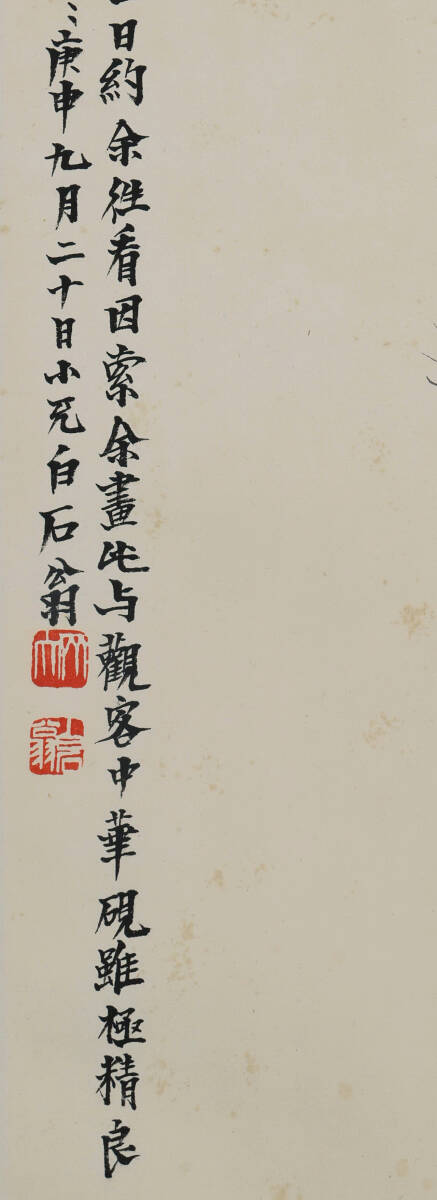 日約余往看因索余畫此与觀客中華硯雖極精良
庚申九月二十日小兄白石翁
木人
白石翁